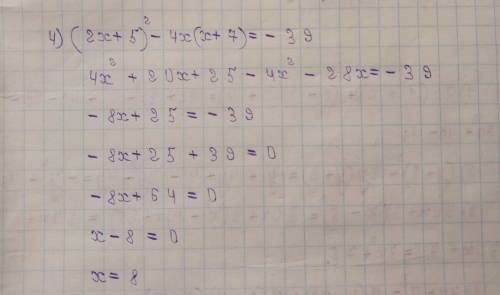 4) (2x+5)² - 4x(x+7) = - 39
4x² + 20x + 25 - 4x² - 28x = - 39
- 8x + 25 = - 39
- 8x + 25 + 39 = 0
- 8x + 64 = 0
x - 8 = 0
x = 8